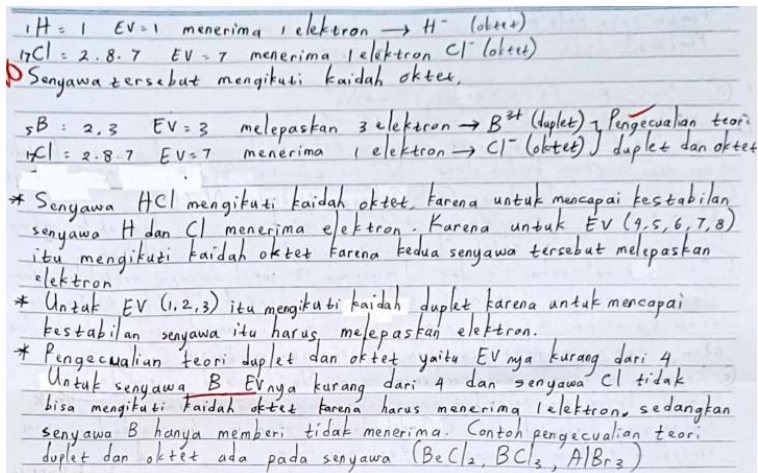 ₁H = 1 EV=1 menerima 1 elektron → H⁻ (oktet)
₁₇Cl : 2.8.7 EV = 7 menerima 1 elektron Cl⁻ (oktet)
Senyawa tersebut mengikuti kaidah oktet.
₅B : 2,3 EV = 3 melepaskan 3 elektron → B³⁺ (duplet) Pengecualian teori
₁₇Cl : 2.8.7 EV=7 menerima 1 elektron → Cl⁻ (oktet) duplet dan oktet
* Senyawa HCl mengikuti kaidah oktet, karena untuk mencapai kestabilan
senyawa H dan Cl menerima elektron. Karena untuk EV (4,5,6,7,8)
itu mengikuti kaidah oktet karena kedua senyawa tersebut melepaskan
elektron
* Untuk EV (1,2,3) itu mengikuti kaidah duplet karena untuk mencapai
kestabilan senyawa itu harus melepaskan elektron.
* Pengecualian teori duplet dan oktet yaitu EV nya kurang dari 4
Untuk senyawa B EVnya kurang dari 4 dan senyawa Cl tidak
bisa mengikuti kaidah oktet karena harus menerima 1 elektron, sedangkan
senyawa B hanya memberi tidak menerima. Contoh pengecualian teori
duplet dan oktet ada pada senyawa (BeCl₂, BCl₃, AlBr₃)